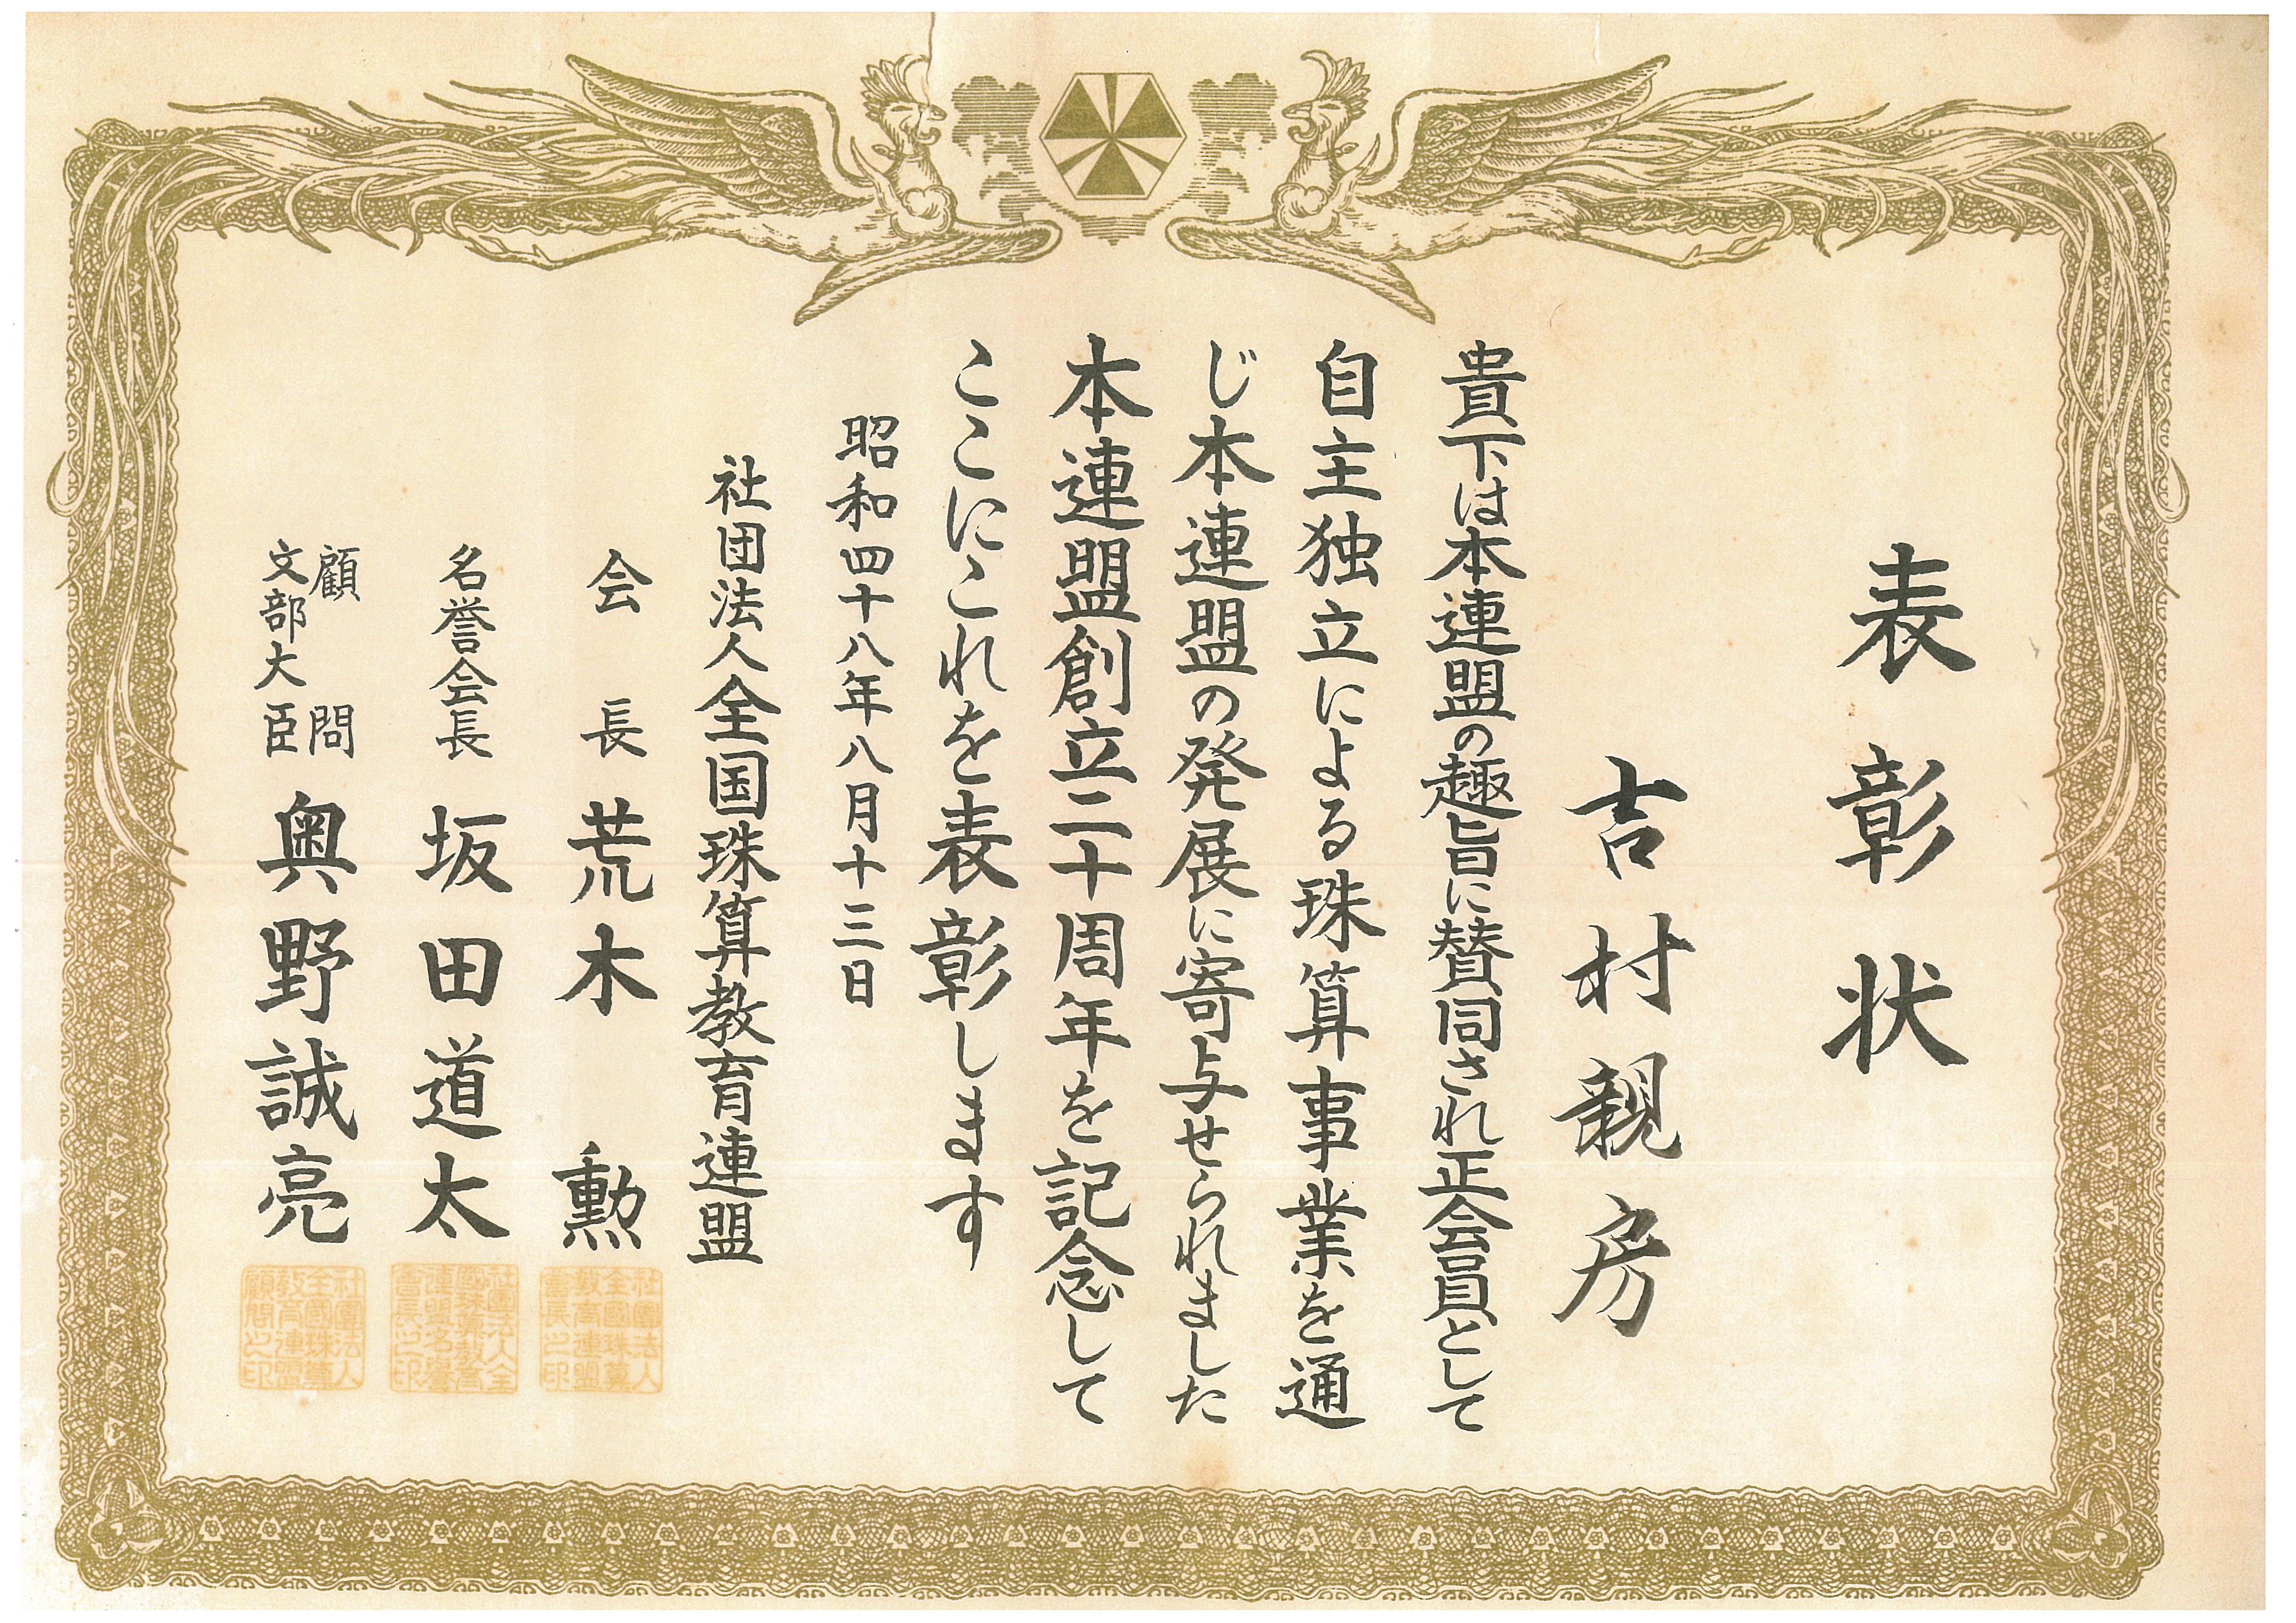 表彰状
吉村親房
貴下は本連盟の趣旨に賛同され正会員として
自主独立による珠算事業を通
じ本連盟の発展に寄与せられました
本連盟創立二十周年を記念して
ここにこれを表彰します
昭和四十八年八月十三日
社団法人全国珠算教育連盟
会長 荒木勲
名誉会長 坂田道太
顧問
文部大臣 奥野誠亮
社團法人
全國珠算
教育連盟
會長之印
社團法人全
國珠算教育
連盟名譽
會長之印
社團法人
全國珠算
教育連盟
顧問之印